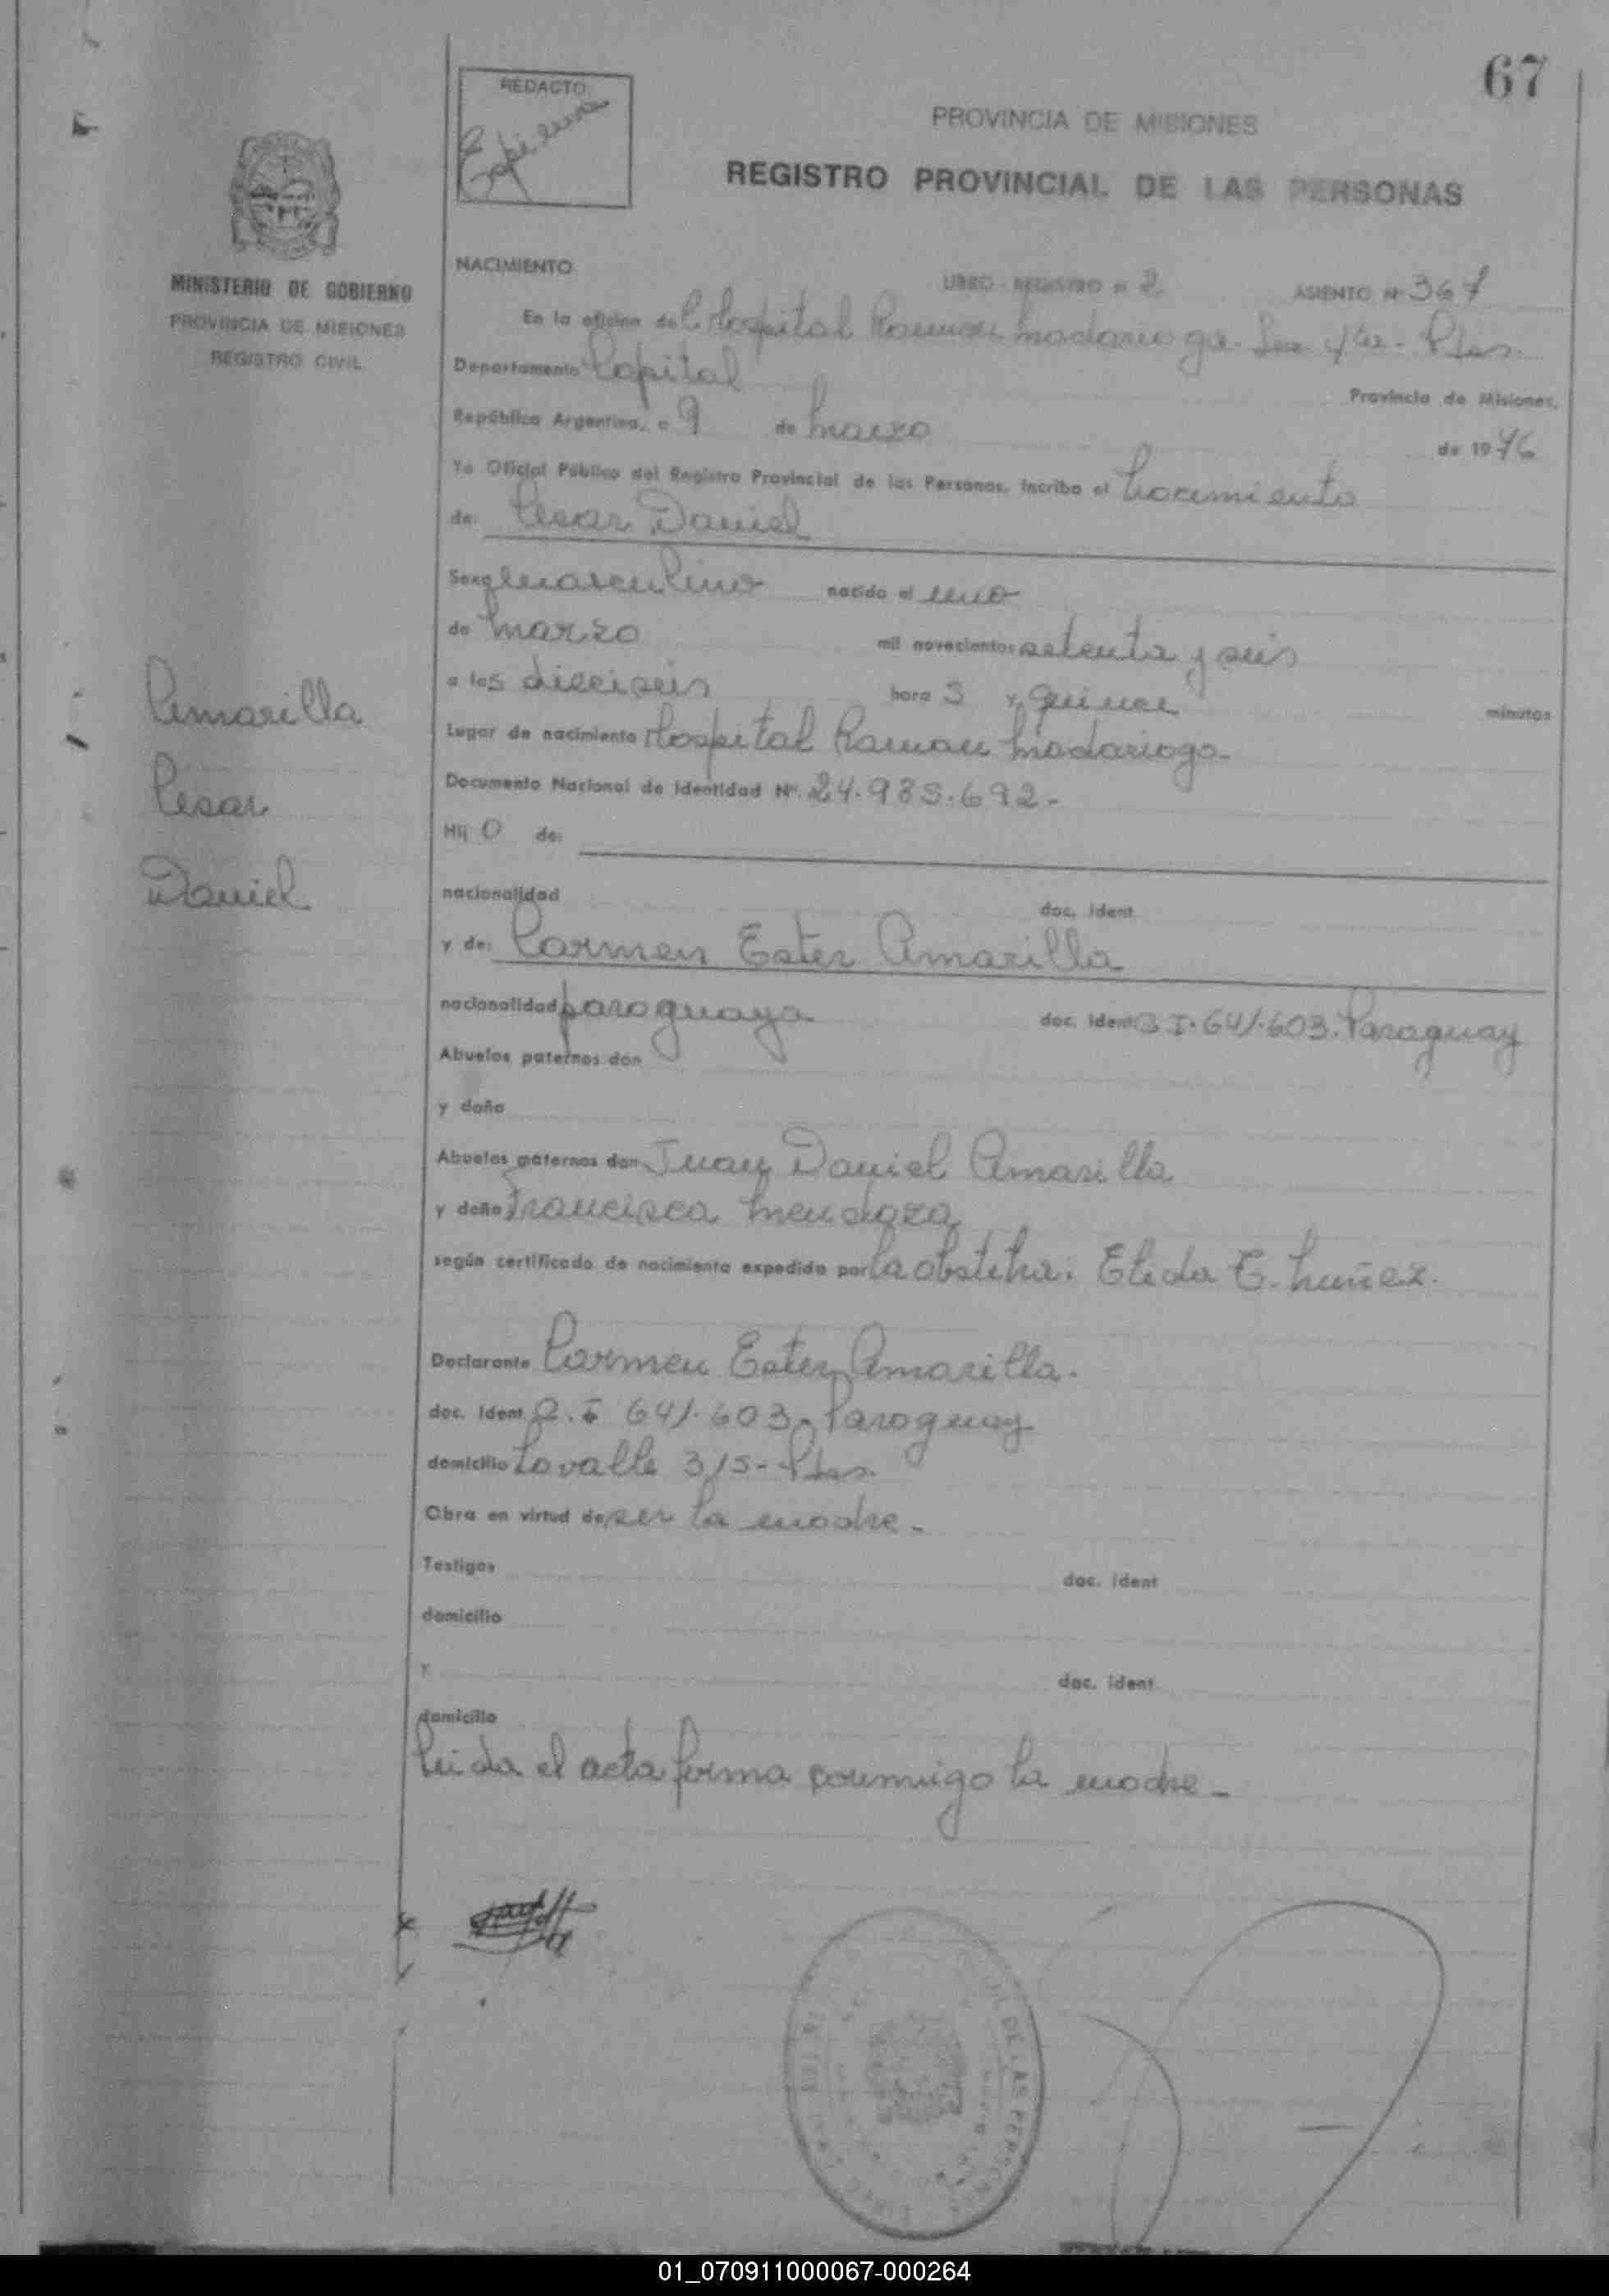 67
REDACTO:
PROVINCIA DE MISIONES
REGISTRO PROVINCIAL DE LAS PERSONAS
MINISTERIO DE GOBIERNO
PROVINCIA DE MISIONES
REGISTRO CIVIL
NACIMIENTO LIBRO REGISTRO Nº 2 ASIENTO Nº 367
En la oficina del Hospital Ramon Madariaga Sec 4ta - Pdas.
Departamento Capital Provincia de Misiones,
República Argentina, a 9 de Marzo de 1976
Yo Oficial Público del Registro Provincial de las Personas, inscribo el Nacimiento
de: Cesar Daniel
Sexo masculino nacido el uno
de Marzo mil novecientos setenta y seis
a las dieciseis hora s y quince minutos
Lugar de nacimiento Hospital Ramon Madariaga-
Documento Nacional de Identidad Nº 24.985.692-
Hij o de:
nacionalidad doc. ident.
y de: Carmen Ester Amarilla
nacionalidad paraguaya doc. ident C.I. 641.603. Paraguay
Abuelos paternos don
y doña
Abuelos maternos don Juan Daniel Amarilla
y doña Francisca Mendoza
según certificado de nacimiento expedido por la obstetra: Elida E. Nuñez.
Declarante Carmen Ester Amarilla.
doc. ident. C.I 641.603. Paraguay
domicilio Lavalle 315- Pdas.
Obra en virtud de ser la madre-
Testigos doc. ident
domicilio
y doc. ident.
domicilio
Leida el acta firma conmigo la madre-
Amarilla
Cesar
Daniel
DE LAS PERSONAS
01_070911000067-000264